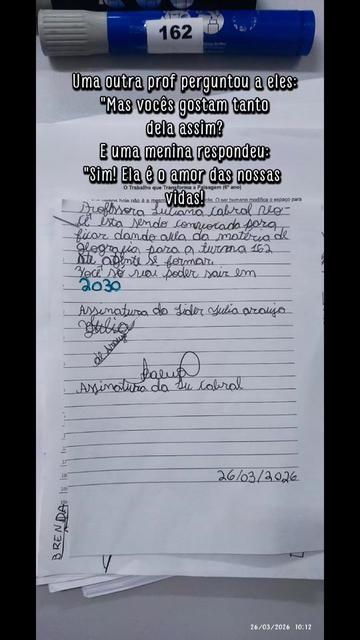 162
Uma outra prof perguntou a eles:
"Mas vocês gostam tanto
dela assim?
E uma menina respondeu:
"Sim! Ela é o amor das nossas
vidas!
O Trabalho que Transforma a Paisagem (6º ano)
hoje não é a O ser humano modifica o espaço para
Professora Juliana Cabral vo-
cê esta sendo convocada para
ficar dando aula da matéria de
geografia para a turma 162
Até agente se formar.
Você só vai poder sair em
2030
Assinatura do lider Julia araujo
Julia
de araujo
Assinatura da Ju cabral
26/03/2026
BRENDA
26/03/2026 10:12